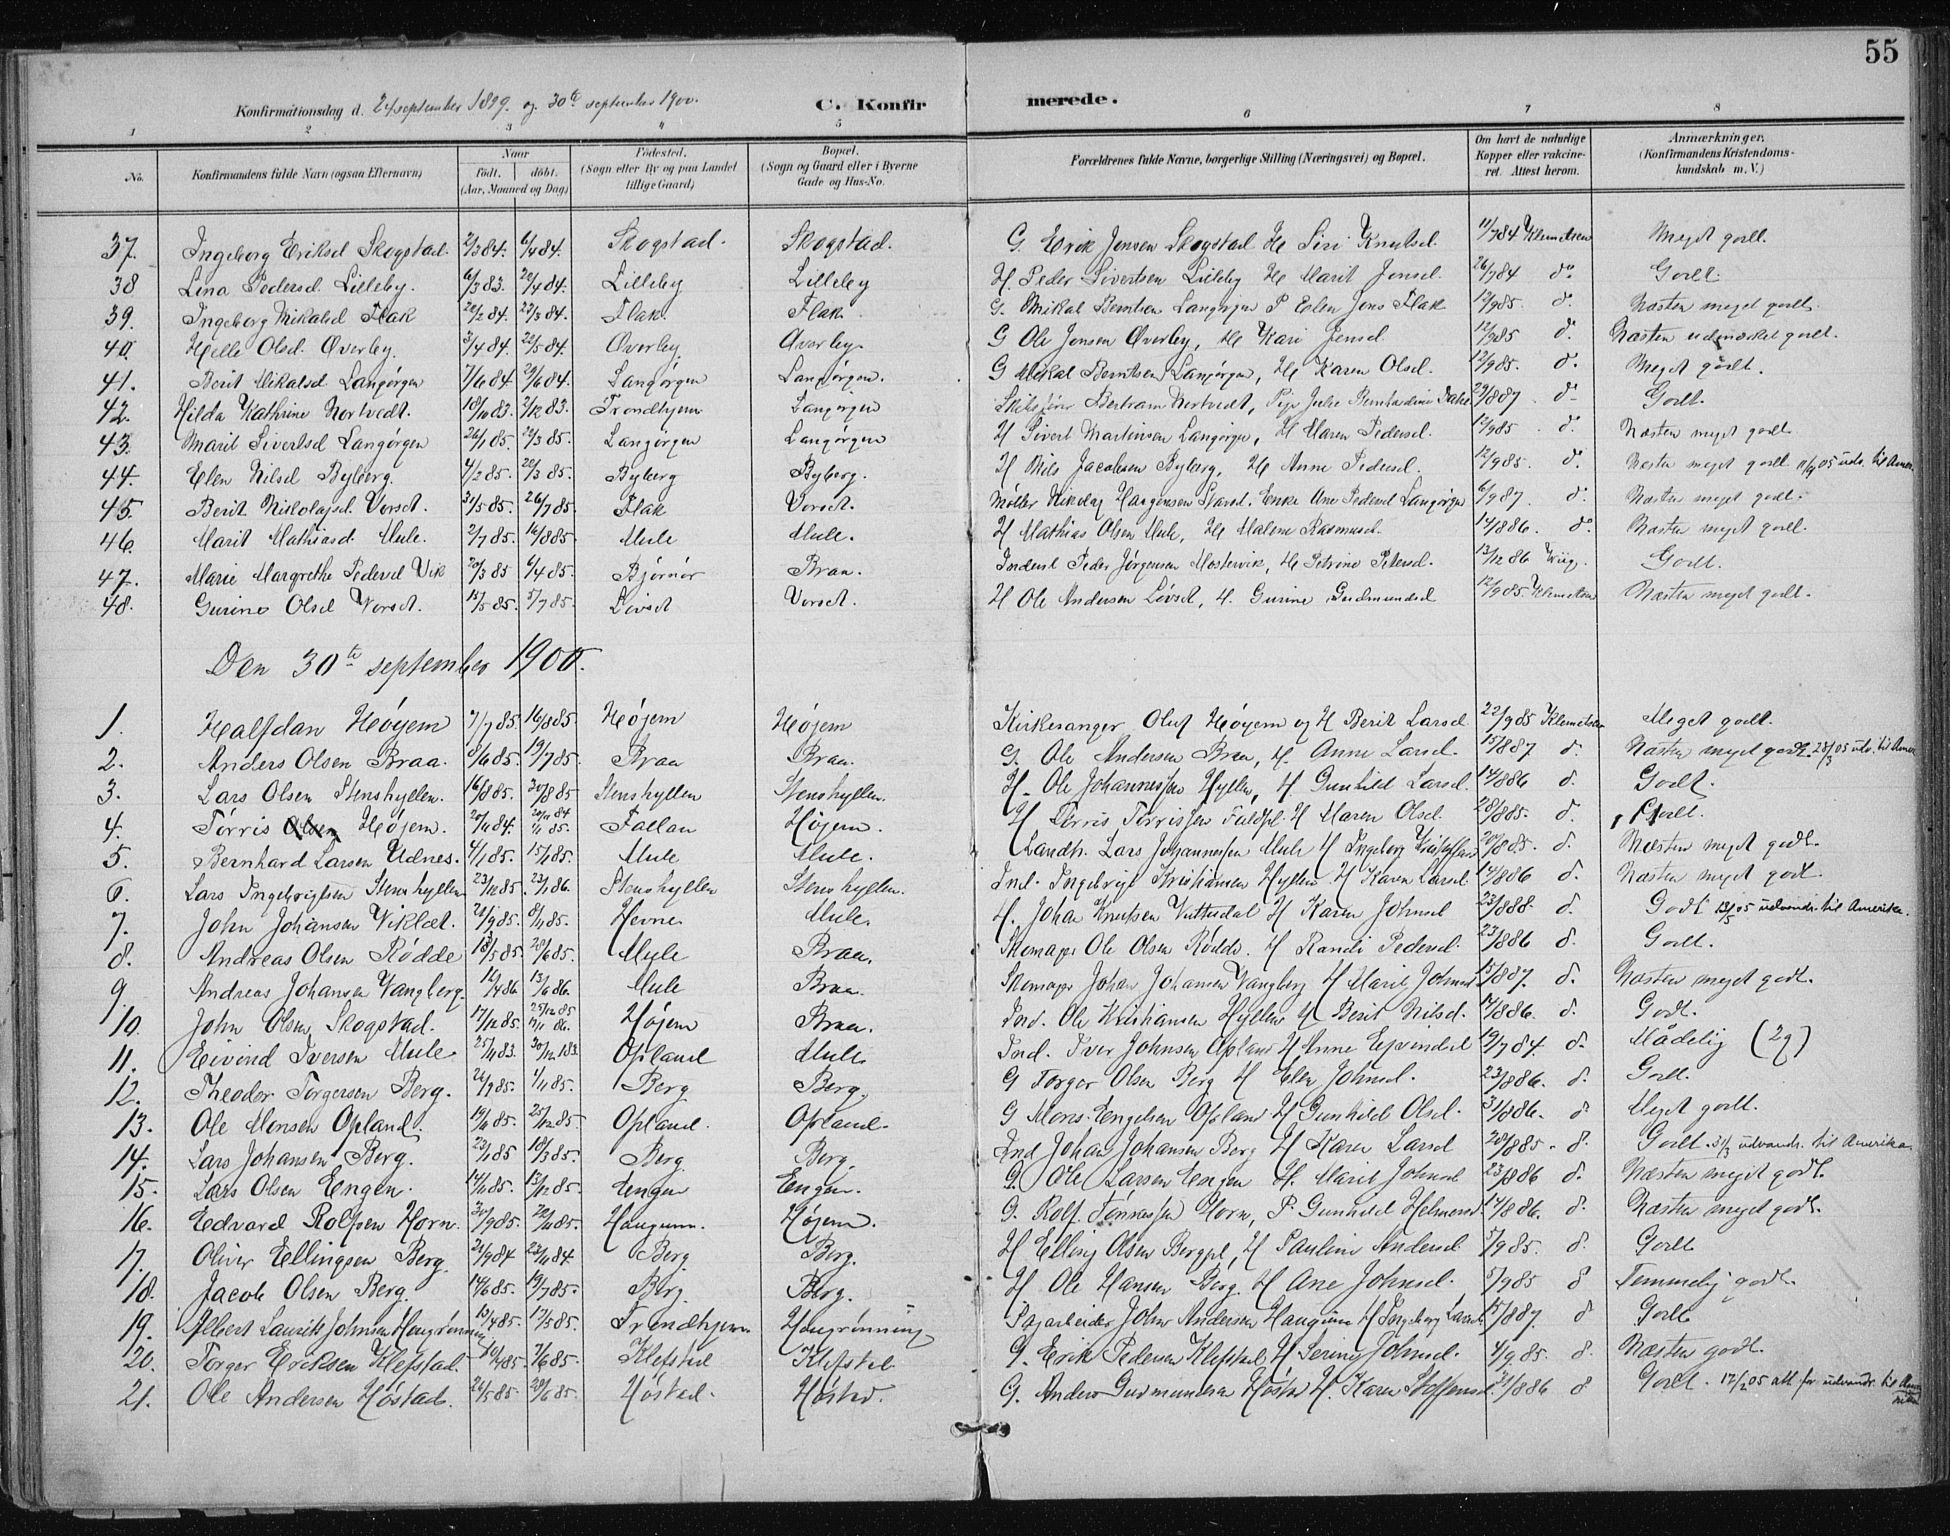 55
Konfirmationsdag d. 24 september 1899. og 30te september 1900. C. Konfirmerede.
1 2 3 4 5 6 7 8
No. Konfirmandens fulde Navn (ogsaa Efternavn) Naar født. døbt. (Aar, Maaned og Dag) Fødested. (Sogn eller By og paa Landet tillige Gaard) Bopæl. (Sogn og Gaard eller i Byerne Gade og Hus-No. Forældrenes fulde Navne, borgerlige Stilling (Næringsvei) og Bopæl. Om havt de naturlige Kopper eller vakcineret. Attest herom. Anmærkninger. (Konfirmandens Kristendomskundskab m. V.)
37. Ingeborg Eriksd Skogstad. 2/3 84. 6/4 84. Skogstad. Skogstad. G. Erik Jensen Skogstad H Siri Knutsd. 11/7 84 Klemetsen Meget godt.
38 Lina Pedersd Lilleby. 6/3 83. 20/4 84. Lilleby Lilleby H. Peder Sivertsen Lilleby H Marit Jonsd. 26/7 84 do. Godt.
39. Ingeborg Mikalsd Flak 20/2 84. 23/3 84. Flak. Flak. G. Mikal Berntsen Langørgen P Elen Jons Flak 12/9 85. d. Næsten meget godt.
40. Helle Olsd. Øverby. 3/4 84. 22/5 84. Øverby. Øverby. G Ole Jonsen Øverby, H Kari Jensd. 12/9 85 d. Næsten udmærket godt.
41. Berit Mikalsd Langørgen 7/6 84. 29/6 84. Langørgen Langørgen. G Mikal Berntsen Langørgen, H Karen Olsd. 12/9 85. d. Meget godt.
42. Hilda Kathrine Nortvedt. 18/10 83. 2/12 83. Trondhjem Langørgen Skibsfører Bertram Nortvedt, Pige Julie Bernhardine 29/8 87 d. Godt.
43. Marit Sivertsd Langørgen 26/1 85. 22/3 85. Langørgen Langørgen H Sivert Martinsen Langørgen, H Maren Pedersd. 12/9 85 d. Næsten meget godt
44. Elen Nilsd Byberg. 4/2 85. 20/3 85. Byberg Byberg. H Nils Jacobsen Byberg, H Anne Pedersd. 12/9 85. d. Næsten meget godt 05 udv. til Amer.
45. Berit Nikolajsd. Vorset. 31/5 85. 26/7 85. Flak Vorset. Møller Nikolaj Haagensen Enke Ane Pedersd Langørgen 6/9 87. d. Næsten meget godt.
46. Marit Mathiasd. Mule. 2/7 85. 16/8 85. Mule Mule. H Mathias Olsen Mule, H Malene Rasmusd. 14/8 86. d. Næsten meget godt.
47. Marie Margrethe Pedersd Vik 20/3 85 6/4 85. Bjørnør Braa. Inderst Peder Jørgensen Mostervik, H Petrine Petersd. 13/12 86 Godt.
48. Gurine Olsd Vorset. 14/5 85. 5/7 85. Løvset Vorset. H Ole Andersen Løvset, H. Gurine Gudmundsd 12/9 85. Klemetsen Næsten meget godt.
Den 30te september 1900.
1. Halfdan Høyem 7/7 85. 16/8 85. Højem Høyem Kirkesanger Oluf Høyem og H Berit Larsd 22/9 85 Klemetsen Meget godt.
2. Anders Olsen Braa. 8/6 85. 19/7 85. Braa Braa. G. Ole Andersen Braa, H. Anne Larsd. 15/8 87 d. Næsten meget godt. 28/3 05 udv. til Amer
3. Lars Olsen Stenshyllen. 16/8 85. 30/8 85 Stenshyllen Stenshyllen. H. Ole Johannessen Hyllen, H Gunhild Larsd. 14/8 86 d. Godt.
4. Tørris Olsen Højem. 20/11 84. Fallan Højem. H Tørris Tørrissen H Maren Olsd. 28/8 85. d. Godt.
5. Bernhard Larsen Udnes. 4/1 85. 15/1 85. Mule Mule. Landh. Lars Johannessen Mule H Ingeborg 20/8 85. d. Næsten meget godt.
6. Lars Ingebrigtsen Stenshyllen 23/12 85. 23/1 86. Stenshyllen Stenshyllen. Ind. Ingebrigt Kristiansen Hyllen H Karen Larsd. 14/8 86 d. Næsten meget godt.
7. John Johansen Viklæt. 21/9 85. 8/11 85. Hevne Mule. H. Johan Knutsen Vuttudal H Karen Johnsd 23/8 88. d. Godt 12/5 05 udvandr. til Amerika.
8. Andreas Olsen Rødde 18/5 85. 28/6 85. Mule Braa. Skomager Ole Olsen Rødde. H Randi Pedersd. 23/8 86 d. Godt.
9. Andreas Johansen Vangberg. 12/4 86. 13/6 86. Mule Braa. Skomager Johan Johansen Vangberg H Marit Johnsd 15/8 87. d. Næsten meget godt.
10. John Olsen Skogstad. 17/12 85. Højem Braa. Ind. Ole Kristiansen Hyllen H Berit Nilsd. 14/8 86. d. Godt.
11. Eivind Iversen Mule 25/11 83. 30/12 183. Opland Mule Ind. Iver Johnsen Opland H Anne Ejvindsd 19/7 84. d. Mådelig (2g)
12. Theodor Torgersen Berg. 26/9 85. 1/11 85. Berg Berg. G Torger Olsen Berg H Elen Johnsd. 23/8 86. d. Godt.
13. Ole Monsen Opland. 19/11 85. 25/12 85. Opland. Opland. G Mons Engelsen Opland H Gunhild Olsd. 31/8 86. d Meget godt.
14. Lars Johansen Berg. 23/1 85 18/3 85. Berg. Berg. Ind Johan Johansen Berg H Karen Larsd 20/8 85. d. Godt. udvandr. til Amerika
15. Lars Olsen Engen. 14/11 85. 13/12 85. Engen Engen. G. Ole Larsen Engen H. Marit Johnsd 23/8 86 d. Næsten meget godt.
16. Edvard Rolfsen Horn. 30/9 85. 22/11 85. Haugum. Højem. G. Rolf Tønnessen Horn, P. Gunhild Helmersd. 14/8 86. d. Næsten meget godt.
17. Oliver Ellingsen Berg. 21/9 84 23/11 84. Berg. Berg. H Elling Olsen Bergpl, H Pauline Andersd 5/9 85. d. Godt
18. Jacob Olsen Berg. 14/6 85. 19/7 85. Berg. Berg. H Ole Hansen Berg. H Ane Johnsd. 5/9 85 d Temmelig godt.
19. Albert Laurits Johnsen Haugrønning 10/4 85. 17/5 85. Trondhjem Haugrønning Fagarbeider John Andersen Haugum H Ingeborg Larsd. 15/8 87. d Godt
20. Torger Eriksen Klefstad. 10/4 85. 7/6 85. Klefstad Klefstad G. Erik Pedersen Klefstad H Serine Johnsd. 4/9 85. d. Næsten godt.
21. Ole Andersen Høstad. 26/5 85. 28/6 85. Høstad. Høstad. G. Anders Gudmundsen Høstad H. Karen Steffensd. 31/8 86 d Godt. 17/2 05 att. for udvandr. til Amerika